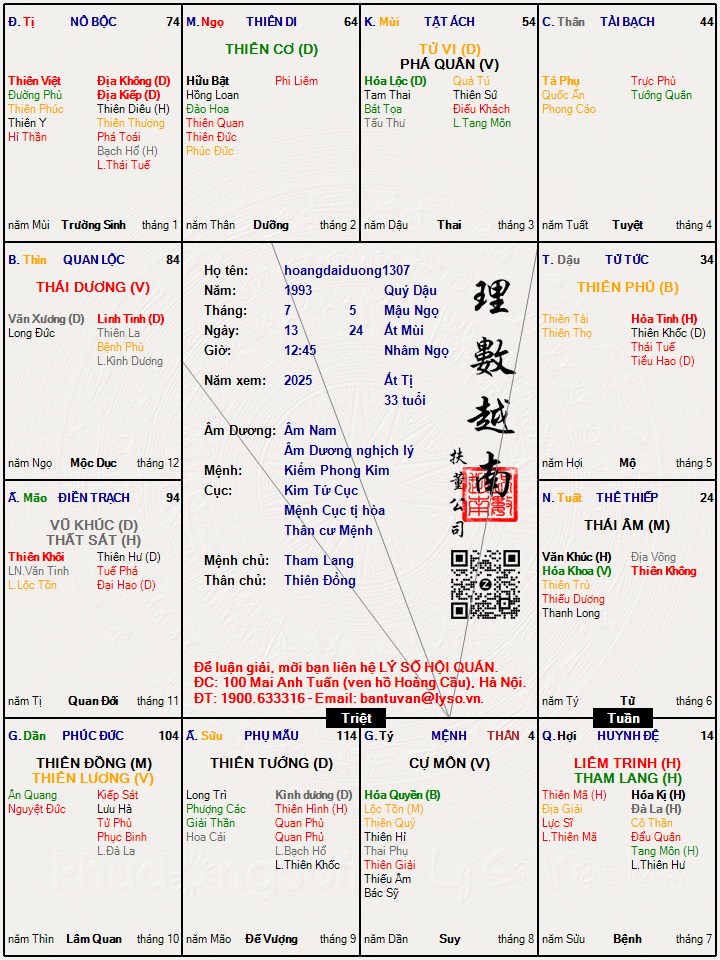 Đ. Tị NÔ BỘC 74
Thiên Việt Địa Không (D)
Đường Phù Địa Kiếp (D)
Thiên Phúc Thiên Diêu (H)
Thiên Y Thiên Thương
Hỉ Thần Phá Toái
Bạch Hổ (H)
L.Thái Tuế
năm Mùi Trường Sinh tháng 1
M. Ngọ THIÊN DI 64
THIÊN CƠ (D)
Hữu Bật Phi Liêm
Hồng Loan
Đào Hoa
Thiên Quan
Thiên Đức
Phúc Đức
năm Thân Dưỡng tháng 2
K. Mùi TẬT ÁCH 54
TỬ VI (D)
PHÁ QUÂN (V)
Hóa Lộc (D) Quả Tú
Tam Thai Thiên Sứ
Bát Tọa Điếu Khách
Tấu Thư L.Tang Môn
năm Dậu Thai tháng 3
C. Thân TÀI BẠCH 44
Tả Phụ Trực Phù
Quốc Ấn Tướng Quân
Phong Cáo
năm Tuất Tuyệt tháng 4
B. Thìn QUAN LỘC 84
THÁI DƯƠNG (V)
Văn Xương (D) Linh Tinh (D)
Long Đức Thiên La
Bệnh Phù
L.Kình Dương
năm Ngọ Mộc Dục tháng 12
Họ tên: hoangdaiduong1307
Năm: 1993 Quý Dậu
Tháng: 7 5 Mậu Ngọ
Ngày: 13 24 Ất Mùi
Giờ: 12:45 Nhâm Ngọ
Năm xem: 2025 Ất Tị
33 tuổi
Âm Dương: Âm Nam
Âm Dương nghịch lý
Mệnh: Kiếm Phong Kim
Cục: Kim Tứ Cục
Mệnh Cục tị hòa
Thân cư Mệnh
Mệnh chủ: Tham Lang
Thân chủ: Thiên Đồng
理數越南
扶董公司
Để luận giải, mời bạn liên hệ LÝ SỐ HỘI QUÁN.
ĐC: 100 Mai Anh Tuấn (ven hồ Hoàng Cầu), Hà Nội.
ĐT: 1900.633316 - Email: bantuvan@lyso.vn.
T. Dậu TỬ TỨC 34
THIÊN PHỦ (B)
Thiên Tài Hỏa Tinh (H)
Thiên Thọ Thiên Khốc (D)
Thái Tuế
Tiểu Hao (D)
năm Hợi Mộ tháng 5
Ấ. Mão ĐIỀN TRẠCH 94
VŨ KHÚC (D)
THẤT SÁT (H)
Thiên Khôi Thiên Hư (D)
LN.Văn Tinh Tuế Phá
L.Lộc Tồn Đại Hao (D)
năm Tị Quan Đới tháng 11
N. Tuất THÊ THIẾP 24
THÁI ÂM (M)
Văn Khúc (H) Địa Võng
Hóa Khoa (V) Thiên Không
Thiên Trù
Thiếu Dương
Thanh Long
năm Tý Tử tháng 6
Triệt
Tuần
G. Dần PHÚC ĐỨC 104
THIÊN ĐỒNG (M)
THIÊN LƯƠNG (V)
Ân Quang Kiếp Sát
Nguyệt Đức Lưu Hà
Tử Phù
Phục Binh
L.Đà La
năm Thìn Lâm Quan tháng 10
Ấ. Sửu PHỤ MẪU 114
THIÊN TƯỚNG (D)
Long Trì Kình dương (D)
Phượng Các Thiên Hình (H)
Giải Thần Quan Phù
Hoa Cái Quan Phủ
L.Bạch Hổ
L.Thiên Khốc
năm Mão Đế Vượng tháng 9
G. Tý MỆNH THÂN 4
CỰ MÔN (V)
Hóa Quyền (B)
Lộc Tồn (M)
Thiên Quý
Thiên Hỉ
Thai Phụ
Thiên Giải
Thiếu Âm
Bác Sỹ
năm Dần Suy tháng 8
Q. Hợi HUYNH ĐỆ 14
LIÊM TRINH (H)
THAM LANG (H)
Thiên Mã (H) Hóa Kị (H)
Địa Giải Đà La (H)
Lực Sĩ Cô Thần
L.Thiên Mã Đẩu Quân
Tang Môn (H)
L.Thiên Hư
năm Sửu Bệnh tháng 7